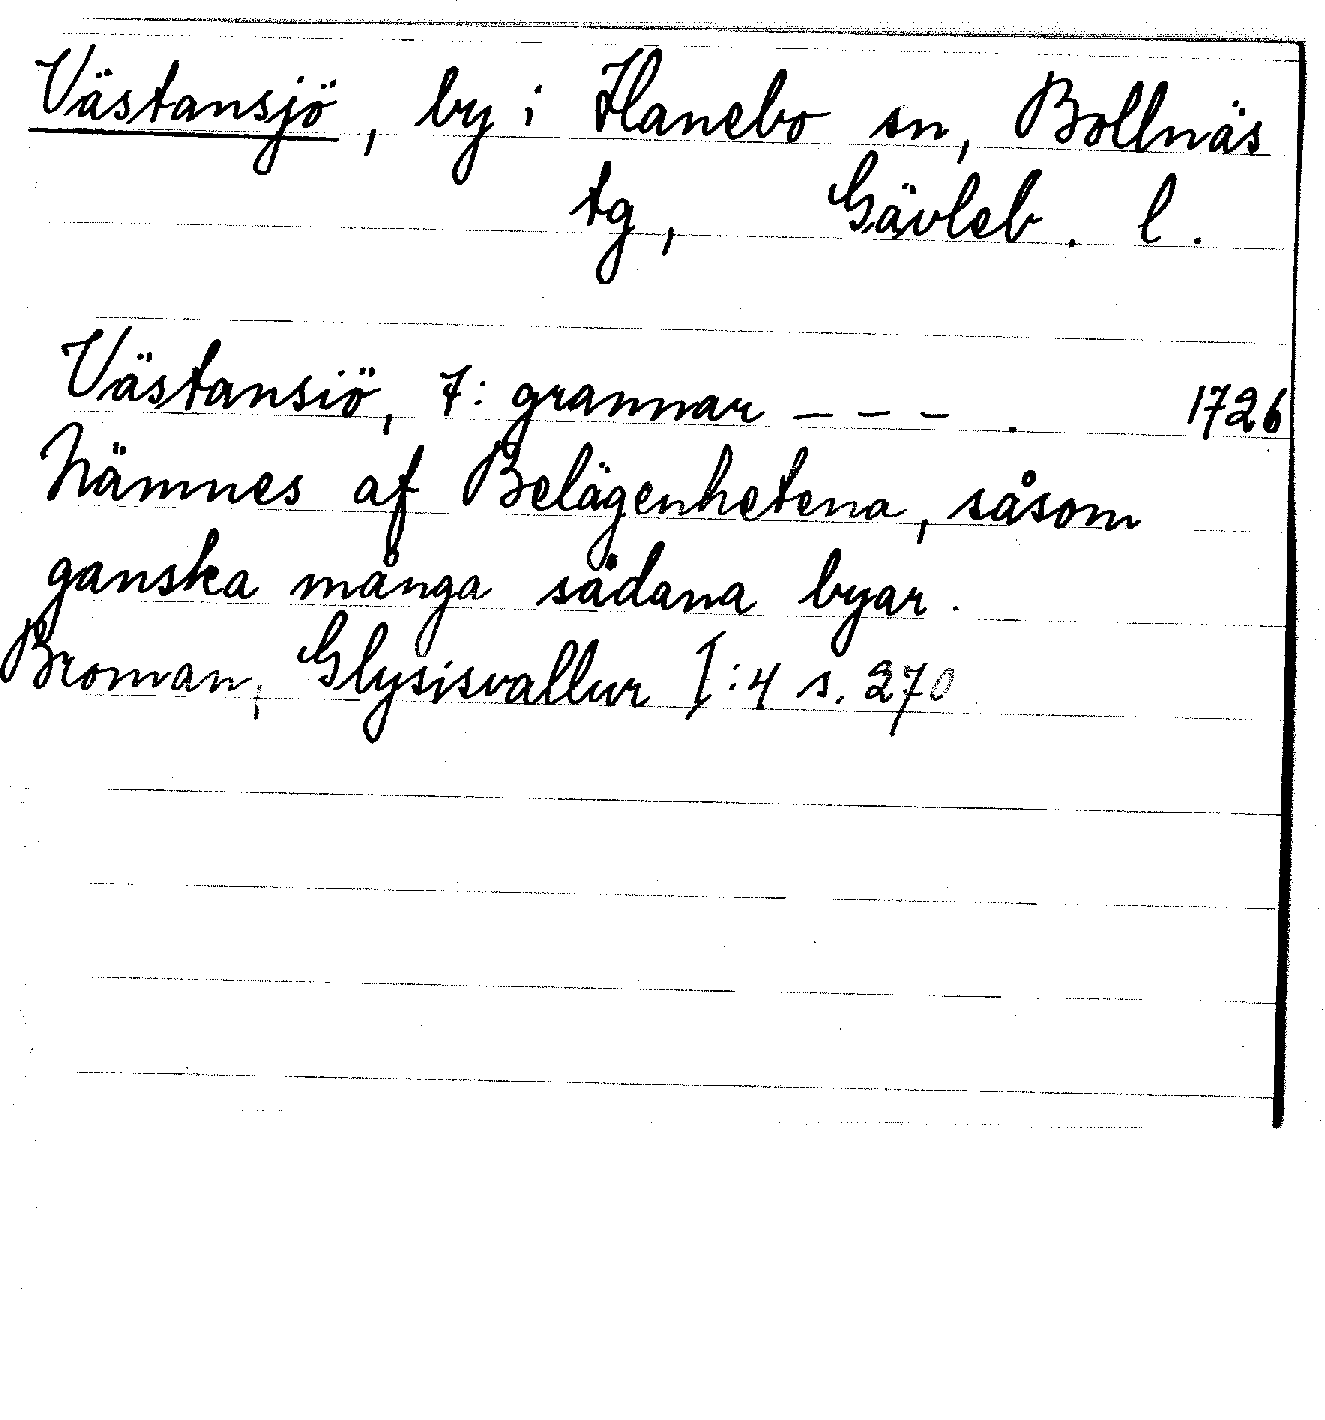 Västansjö, by i Hanebo sn, Bollnäs
tg, Gävleb. l.
Västansiö, 7: grannar – – – . 1726
Nämnes af Belägenhetena, såsom
ganska många sådana byar.
Broman, Glysisvallur I:4 s. 270